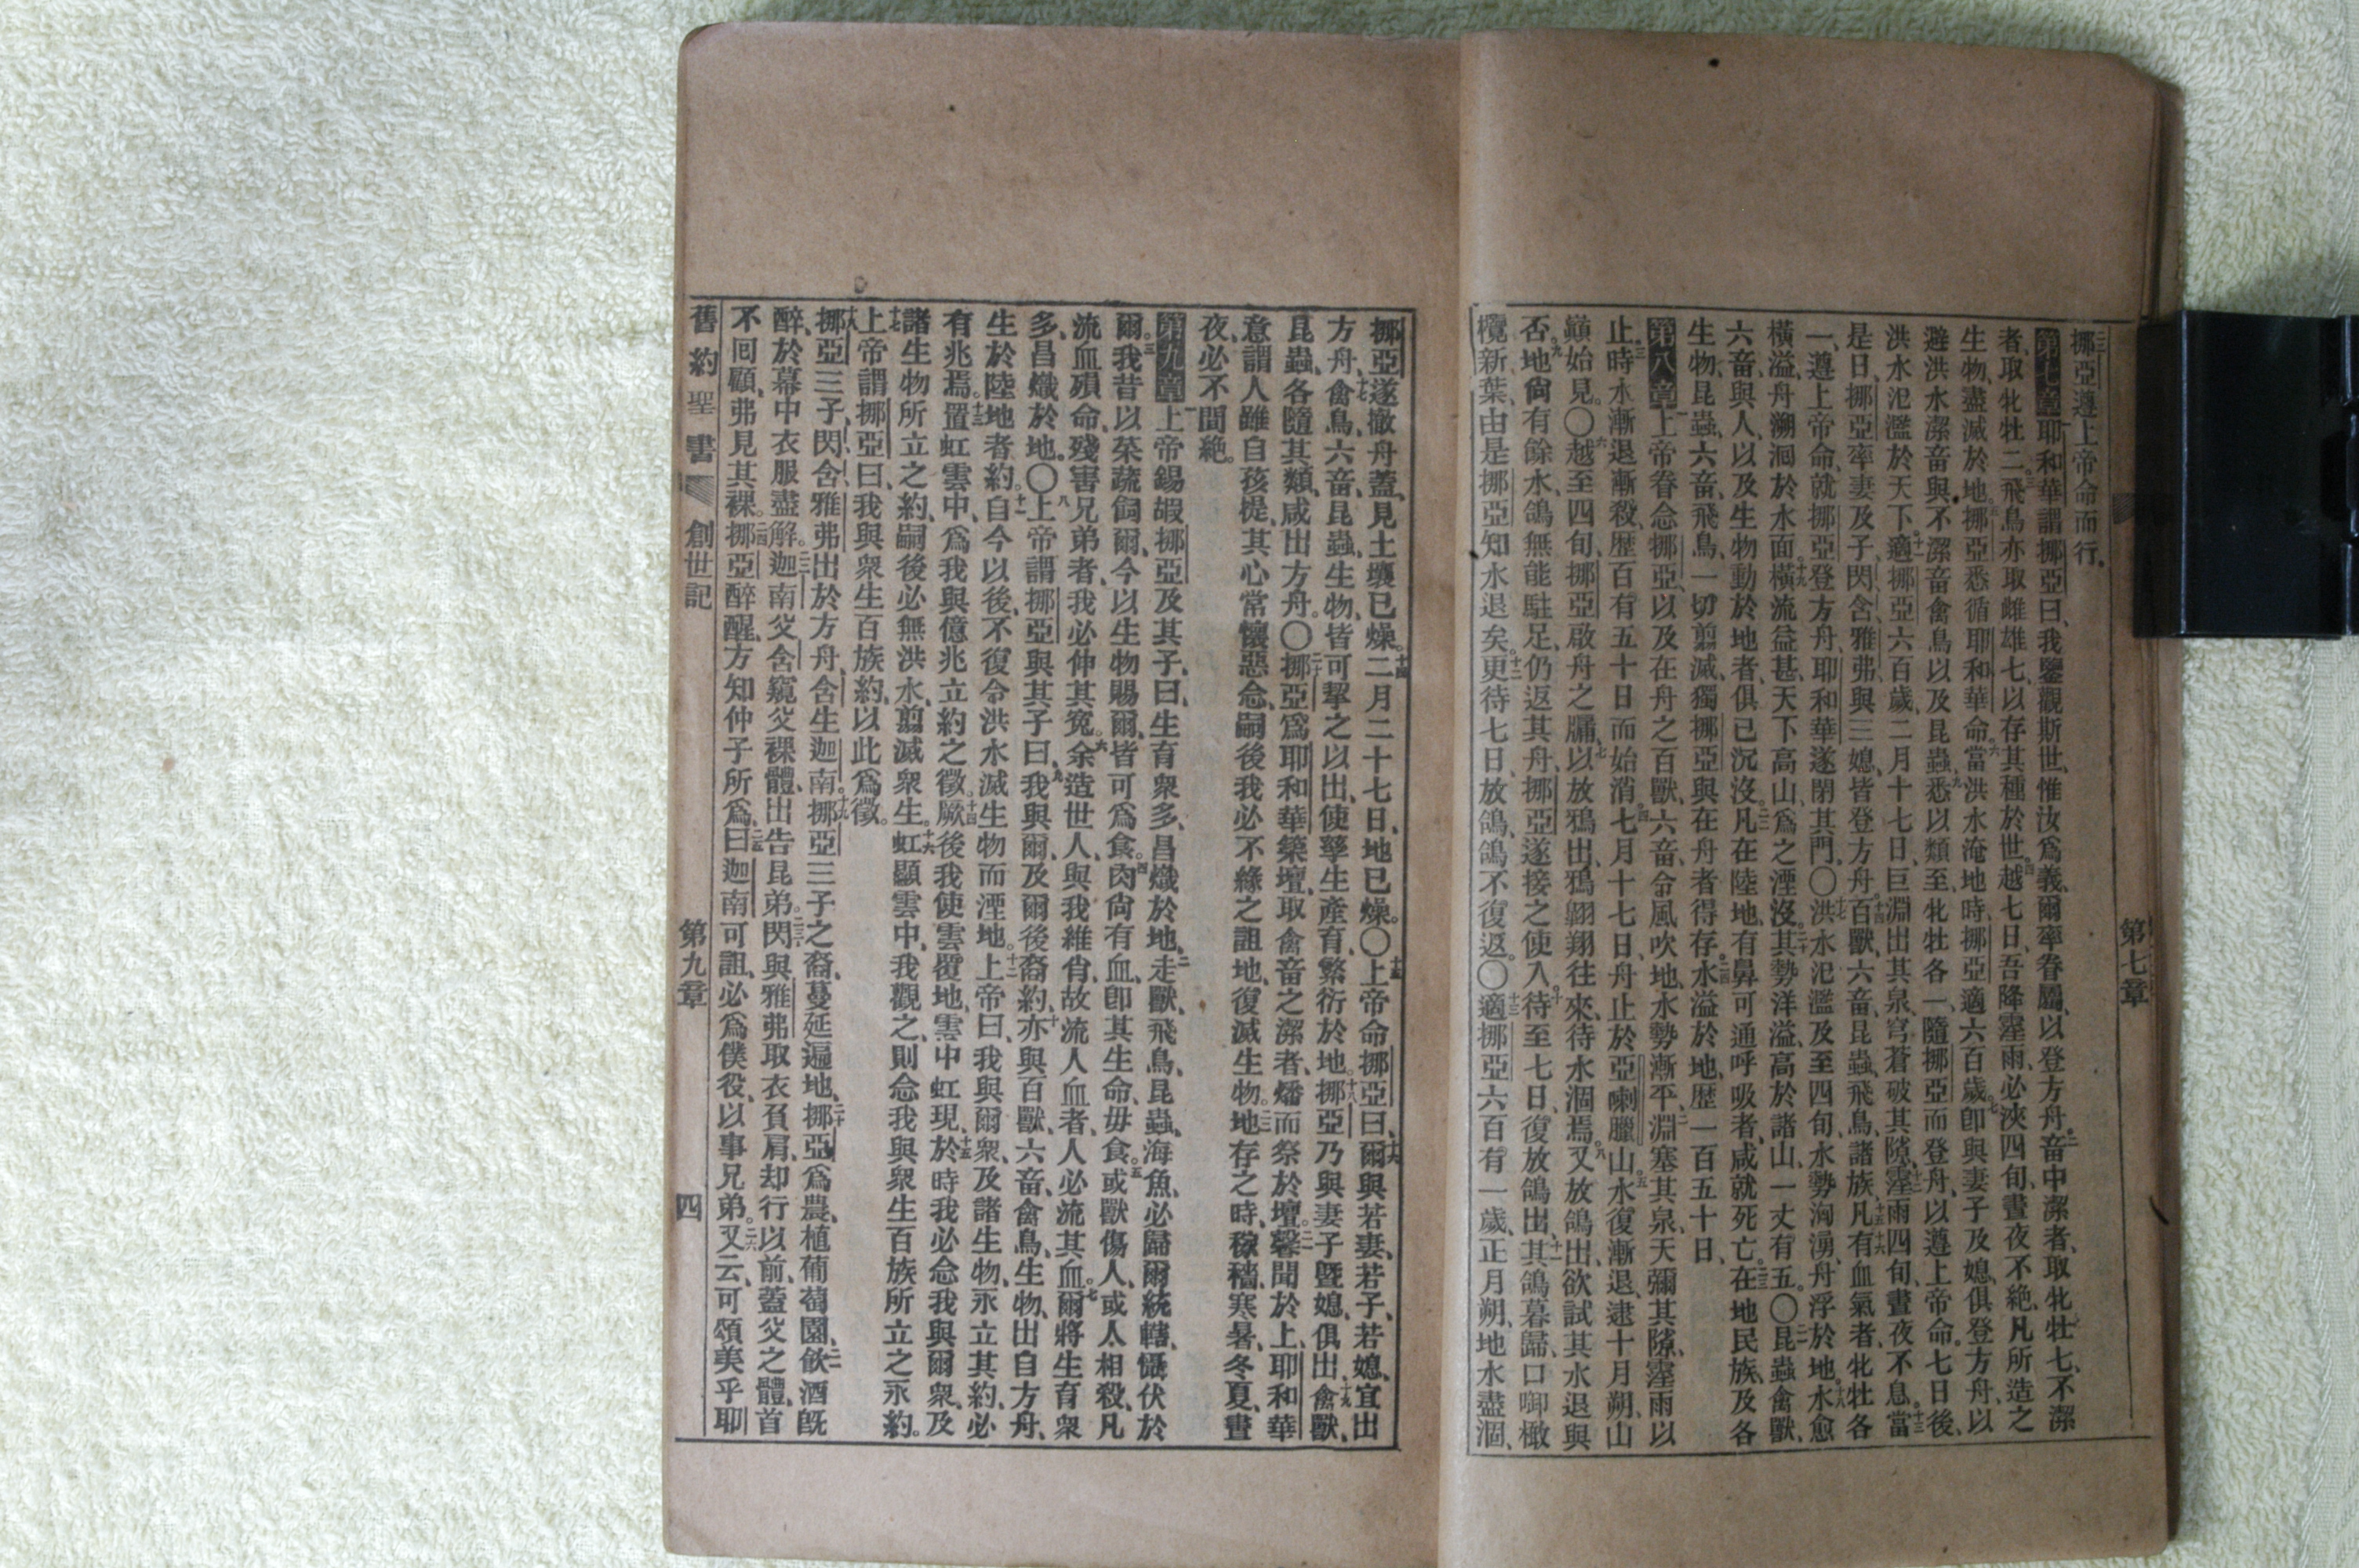 第七章
挪亞遵上帝命而行。
第七章耶和華謂挪亞曰、我鑒觀斯世、惟汝爲義、爾率眷屬、以登方舟。二畜中潔者、取牝牡七、不潔
者、取牝牡二。三飛鳥亦取雌雄七、以存其種於世。四越七日、吾降霪雨、必浹四旬、晝夜不絶、凡所造之
生物、盡滅於地。五挪亞悉循耶和華命。六當洪水淹地時、挪亞適六百歲。七卽與妻子及媳、俱登方舟、以
避洪水。潔畜與不潔畜禽鳥以及昆蟲、九悉以類至、牝牡各一、隨挪亞而登舟、以遵上帝命。七日後、
洪水氾濫於天下。十一適挪亞六百歲、二月十七日、巨淵出其泉、穹蒼破其隙、十二霪雨四旬、晝夜不息。十三當
是日、挪亞率妻及子閃、含、雅弗、與三媳、皆登方舟。十四百獸、六畜、昆蟲、飛鳥、諸族、十五凡有十六血氣者、牝牡各
一、遵上帝命、就挪亞登方舟、耶和華遂閉其門。〇十七洪水氾濫及至四旬、水勢洶湧、舟浮於地、十八水愈
橫溢、舟溯洄於水面。十九橫流益甚、天下高山、爲之湮沒。二十其勢洋溢、高於諸山、一丈有五。〇二一昆蟲禽獸、
六畜、與人、以及生物動於地者、俱已沉沒。二二凡在陸地、有鼻可通呼吸者、咸就死亡。二三在地民族、及各
生物、昆蟲、六畜、飛鳥、一切翦滅、獨挪亞與在舟者得存。二四水溢於地、歷一百五十日、
第八章一上帝眷念挪亞、以及在舟之百獸、六畜、令風吹地、水勢漸平、二淵塞其泉、天彌其隙、霪雨以
止。三時水漸退漸殺、歷百有五十日而始消。四七月十七日、舟止於亞喇臘山、五水復漸退、逮十月朔、山
巓始見。〇六越至四旬、挪亞啟舟之牖、七以放鴉出、鴉翺翔往來、待水涸焉。八又放鴿出、欲試其水退與
否。九地尙有餘水、鴿無能駐足、仍返其舟、挪亞遂接之使入。十待至七日、復放鴿出、十一其鴿暮歸、口啣橄
欖新葉、由是挪亞知水退矣。十二更待七日、放鴿、鴿不復返。〇十三適挪亞六百有一歲、正月朔、地水盡涸、
挪亞遂撤舟蓋、見土壤已燥。十四二月二十七日、地已燥。〇十五上帝命挪亞曰、十六爾與若妻、若子、若媳、宜出
方舟、十七禽鳥、六畜、昆蟲、生物、皆可挈之以出、使孳生產育、繁衍於地。十八挪亞乃與妻子曁媳、俱出、十九禽獸、
昆蟲、各隨其類、咸出方舟。〇二十挪亞爲耶和華築壇、取禽畜之潔者、燔而祭於壇。二一馨聞於上、耶和華
意謂人雖自孩提、其心常懷惡念、嗣後我必不緣之詛地、復滅生物。二二地存之時、稼穡寒暑、冬夏、晝
夜、必不間絶。
第九章一上帝錫嘏挪亞及其子、曰、生育衆多、昌熾於地、二走獸、飛鳥、昆蟲、海魚、必歸爾統轄、懾伏於
爾。三我昔以菜蔬飼爾、今以生物賜爾、皆可爲食。四肉尙有血、卽其生命、毋食。五或獸傷人、或人相殺、凡
流血殞命、殘害兄弟者、我必伸其寃。六余造世人、與我維肖、故流人血者、人必流其血。七爾將生育衆
多、昌熾於地。〇八上帝謂挪亞與其子曰、九我與爾、及爾後裔約、十亦與百獸、六畜、禽鳥、生物、出自方舟、
生於陸地者約。十一自今以後、不復令洪水滅生物而湮地。十二上帝曰、我與爾衆、及諸生物、永立其約、必
有兆焉。十三置虹雲中、爲我與億兆立約之徵。十四厥後我使雲覆地、雲中虹現、十五於時我必念我與爾衆、及
諸生物所立之約、嗣後必無洪水、翦滅衆生。十六虹顯雲中、我觀之、則念我與衆生百族所立之永約。
十七上帝謂挪亞曰、我與衆生百族約、以此爲徵。
十八挪亞三子、閃、含、雅弗、出於方舟、含生迦南。十九挪亞三子之裔、蔓延遍地、二十挪亞爲農、植葡萄園、二一飮酒旣
醉、於幕中衣服盡解。二二迦南父含窺父裸體、出告昆弟。二三閃與雅弗取衣負肩、却行以前、蓋父之體、首
不囘顧、弗見其裸。二四挪亞醉醒、方知仲子所爲、二五曰迦南可詛、必爲僕役、以事兄弟。二六又云、可頌美乎耶
舊約聖書 創世記 第九章 四